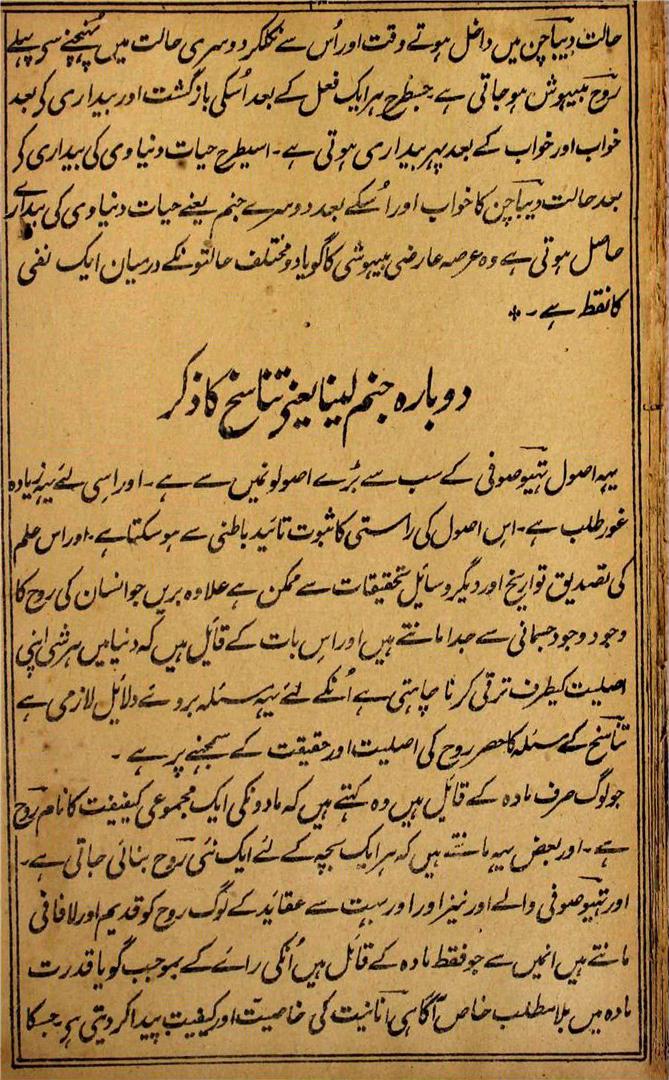 حالت دیباچن میں داخل ہوتے وقت اور اُس سے نکلکر دوسری حالت میں پُہنچنے سے پہلے
روح بیہوش ہو جاتی ہے۔ جسطرح ہر ایک فعل کے بعد اُسکی بازگشت اور بیداری کے بعد
خواب اور خواب کے بعد پہر بیداری ہوتی ہے۔ اسیطرح حیات دنیاوی کی بیداری کے
بعد حالت دیباچن کا خواب اور اُسکے بعد دوسرے جنم یعنے حیات دنیاوی کی بیداری
حاصل ہوتی ہے وہ عرصہ عارضی بیہوشی کا گویا دو مختلف حالتونکے درمیان ایک نفی
کا نقط ہے۔
دوبارہ جنم لینا یعنے تناسخ کا ذکر
یہہ اصول تہیوصوفی کے سب سے بڑے اصولونمیں سے ہے۔ اور اسی لئے یہہ زیادہ
غور طلب ہے۔ اس اصول کی راستی کا ثبوت تائید باطنی سے ہو سکتا ہے۔ اور اس علم
کی تصدیق تواریخ اور دیگر وسایل تحقیقات سے ممکن ہے علاوہ بریں جو انسان کی روح کا
وجود وجود جسمانی سے جدا مانتے ہیں اور اس بات کے قائل ہیں کہ دنیا میں ہر شی اپنی
اصلیت کیطرف ترقی کرنا چاہتی ہے اُنکے لئے یہہ مسئلہ بروئے دلائل لازمی ہے
تناسخ کے مسئلہ کا حصر روح کی اصلیت اور حقیقت کے سمجہنے پر ہے۔
جو لوگ صرف مادہ کے قائل ہیں وہ کہتے ہیں کہ مادونکی ایک مجموعی کیفیت کا نام روح
ہے۔ اور بعض یہہ مانتے ہیں کہ ہر ایک بچہ کے لئے ایک نئی روح بنائی جاتی ہے۔
اور تہیوصوفی والے اور نیز اور اور بہت سے عقائد کے لوگ روح کو قدیم اور لافانی
مانتے ہیں انمیں سے جو فقط مادہ کے قائل ہیں اُنکی رائے کے بموجب گویا قدرت
مادہ میں بلا مطلب خاص آگاہی انانیت کی خاصیت اور کیفیت پیدا کر دیتی ہے جسکا